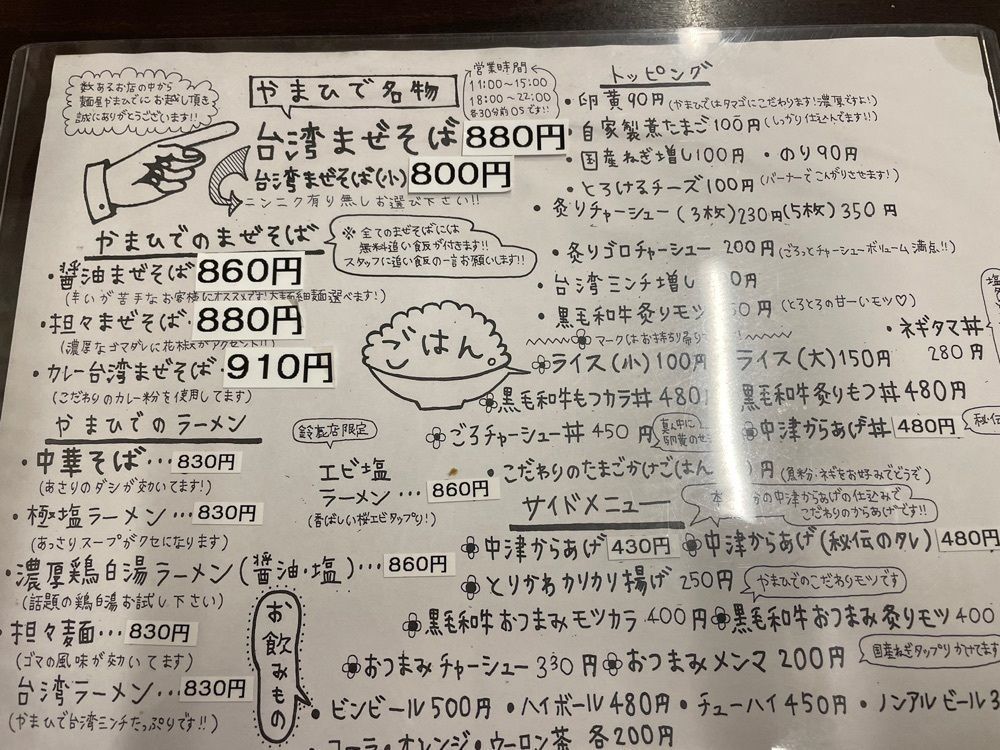 数あるお店の中から
麺屋やまひでにお越し頂き
誠にありがとうございます!!
やまひで名物
営業時間
11:00〜15:00
18:00〜22:00
各30分前OSです!!
台湾まぜそば 880円
台湾まぜそば(小) 800円
ニンニク有り無しお選び下さい!!
やまひでのまぜそば
※全てのまぜそばには
無料追い飯が付きます!!
スタッフに追い飯の一言お願いします!!
・醤油まぜそば 860円
(辛いが苦手なお客様にオススメです!太麺細麺選べます!)
・担々まぜそば 880円
(濃厚なゴマダレに花椒がアクセント!!)
・カレー台湾まぜそば・910円
(こだわりのカレー粉を使用してます)
やまひでのラーメン
・中華そば・・・830円
(あさりのダシが効いてます!)
・極塩ラーメン・・・830円
(あっさりスープがクセになります)
・濃厚鶏白湯ラーメン(醤油・塩)・・・860円
(話題の鶏白湯お試し下さい)
・担々麺・・・830円
(ゴマの風味が効いてます)
・台湾ラーメン・・・830円
(やまひで台湾ミンチたっぷりです!!)
限定
エビ塩
ラーメン・・・860円
(香ばしい桜エビタップリ!)
トッピング
・卵黄90円(やまひではタマゴにこだわります!濃厚ですよ!)
・自家製煮たまご100円(しっかり仕込んでます!!)
・国産ねぎ増し100円 ・のり90円
・とろけるチーズ100円(バーナーでこんがりさせます!)
・炙りチャーシュー(3枚)230円(5枚)350円
・炙りゴロチャーシュー 200円(ごろっとチャーシューボリューム満点!!)
・台湾ミンチ増し 0円
・黒毛和牛炙りモツ 50円(とろとろの甘〜いモツ♡)
マークはお持ち帰り
ごはん。
ライス(小)100円 ライス(大)150円
・ネギタマ丼
280円
黒毛和牛もつカラ丼 480 黒毛和牛炙りもつ丼 480円
ごろチャーシュー丼 450円
真ん中に
卵黄のせ
中津からあげ丼 480円
・こだわりのたまごかけごはん 円(魚粉・ネギをお好みでどうぞ)
サイドメニュー
の中津からあげの仕込みで
こだわりのからあげです!!
中津からあげ 430円 中津からあげ(秘伝のタレ) 480円
とりかわカリカリ揚げ 250円
やまひでのこだわりモツです
黒毛和牛おつまみモツカラ 400円 黒毛和牛おつまみ炙りモツ 400
国産ねぎタップリかけてます
おつまみチャーシュー 330円 おつまみメンマ 200円
お飲みもの
・ビンビール500円 ・ハイボール480円 ・チューハイ450円 ・ノンアルビール3
・コーラ・オレンジ・ウーロン茶 各200円